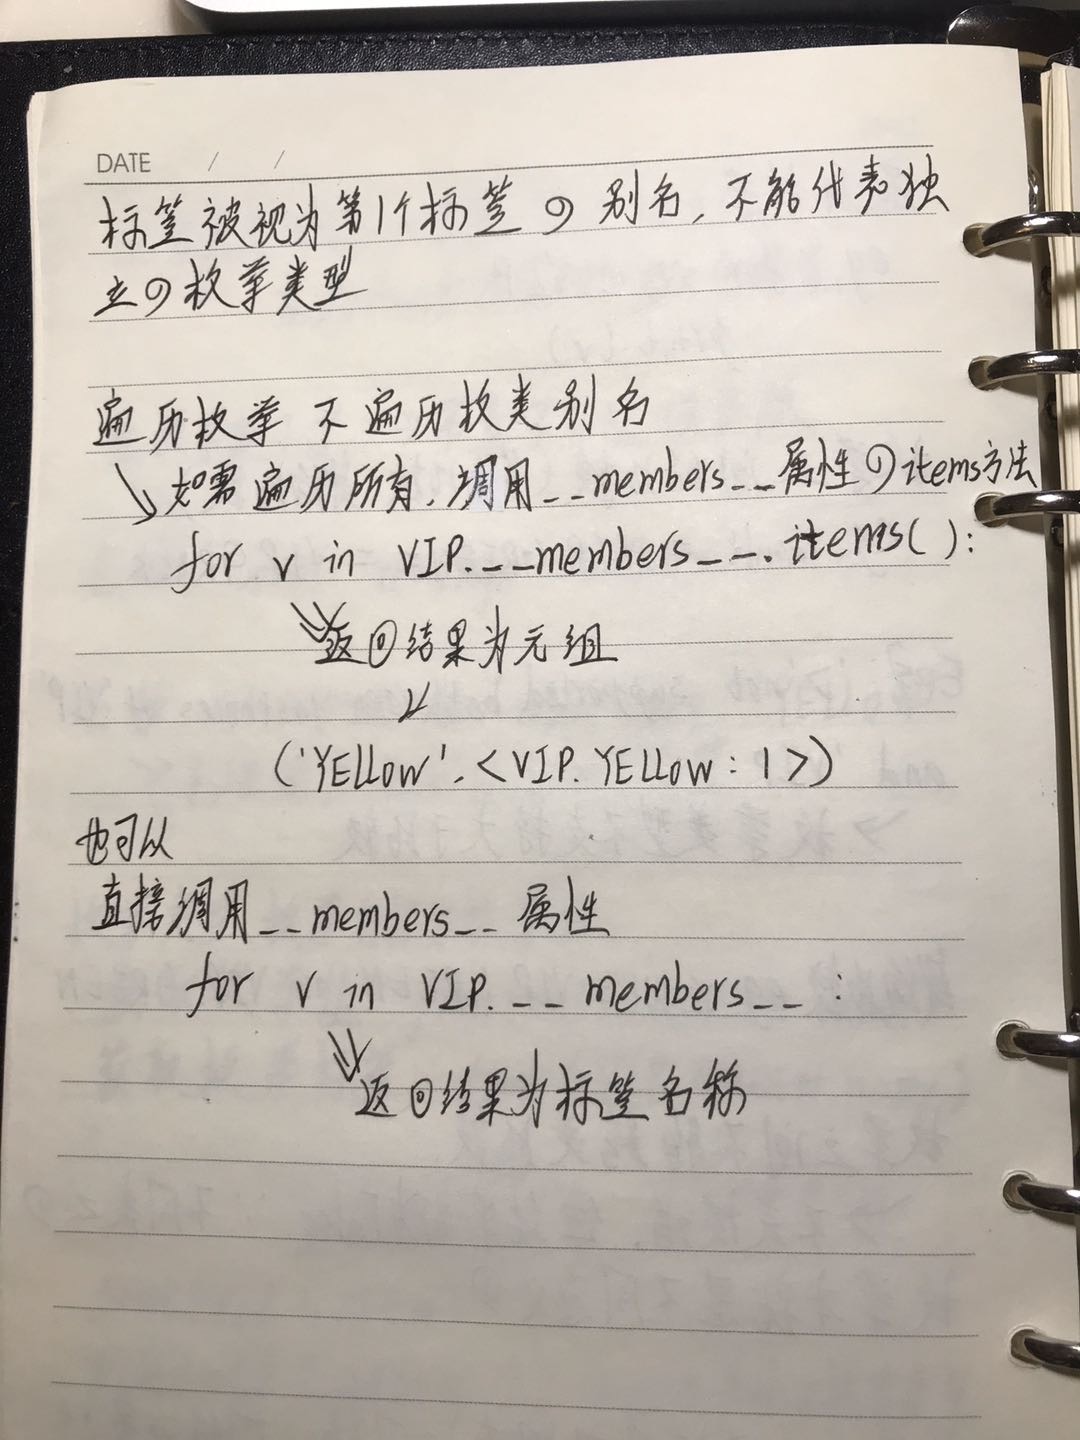 DATE / /
标签被视为第1个标签の别名,不能代表独
立の枚举类型
遍历枚举 不遍历枚类别名
如需遍历所有,调用__members__属性のitems方法
for v in VIP.__members__.items():
返回结果为元组
('YELLOW',<VIP.YELLOW:1>)
也可以
直接调用__members__属性
for v in VIP.__members__:
返回结果为标签名称